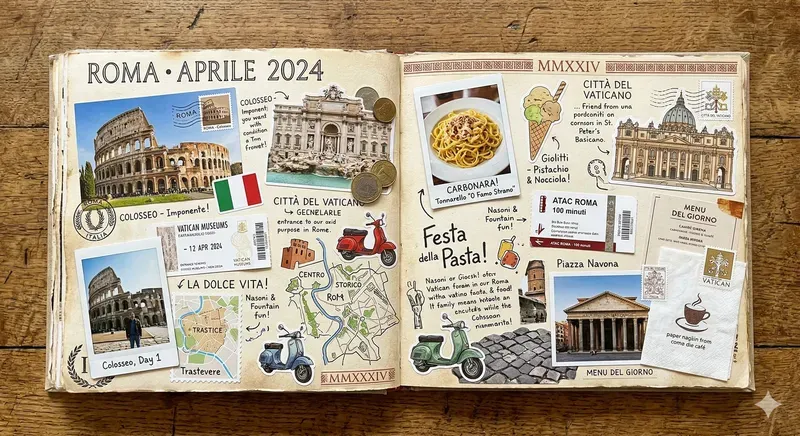 ROMA · APRILE 2024
ROMA - Colosseo
COLOSSEO
Imponent:
you want
with
condition
a Tnn
Fronet!
COLOSSEO - Imponente!
ITALIA
CITTÀ DEL VATICANO
GECNELARLE
entrance to our oxid
purpose in Rome.
VATICAN MUSEUMS
- 12 APR 2024
VATICAN
MUSEUMS
LA DOLCE VITA!
Nasoni &
Fountain
fun!
CENTRO
STORICO
ROM
TRASTICE
Trastevere
Colosseo, Day 1
MMXXXIV
MMXXIV
CARBONARA!
Tonnarello "O Famo Strano"
Giolitti
- Pistachio
& Nocciola!
CITTÀ DEL
VATICANO
... Friend from una
pordconiti on
cornsors in St.
Peter's
Basicano.
CITTÀ DEL VATICANO
Festa
della Pasta!
Nasoni &
Fountain
fun!
ATAC ROMA
100 minuti
ATAC ROMA · 100 minuti
MENU
DEL GIORNO
Vatican foram in our Roma
with a vatino foota, & food!
It family means
while the
Piazza Navona
VATICAN
paper naplin from
come die café
MENU DEL GIORNO